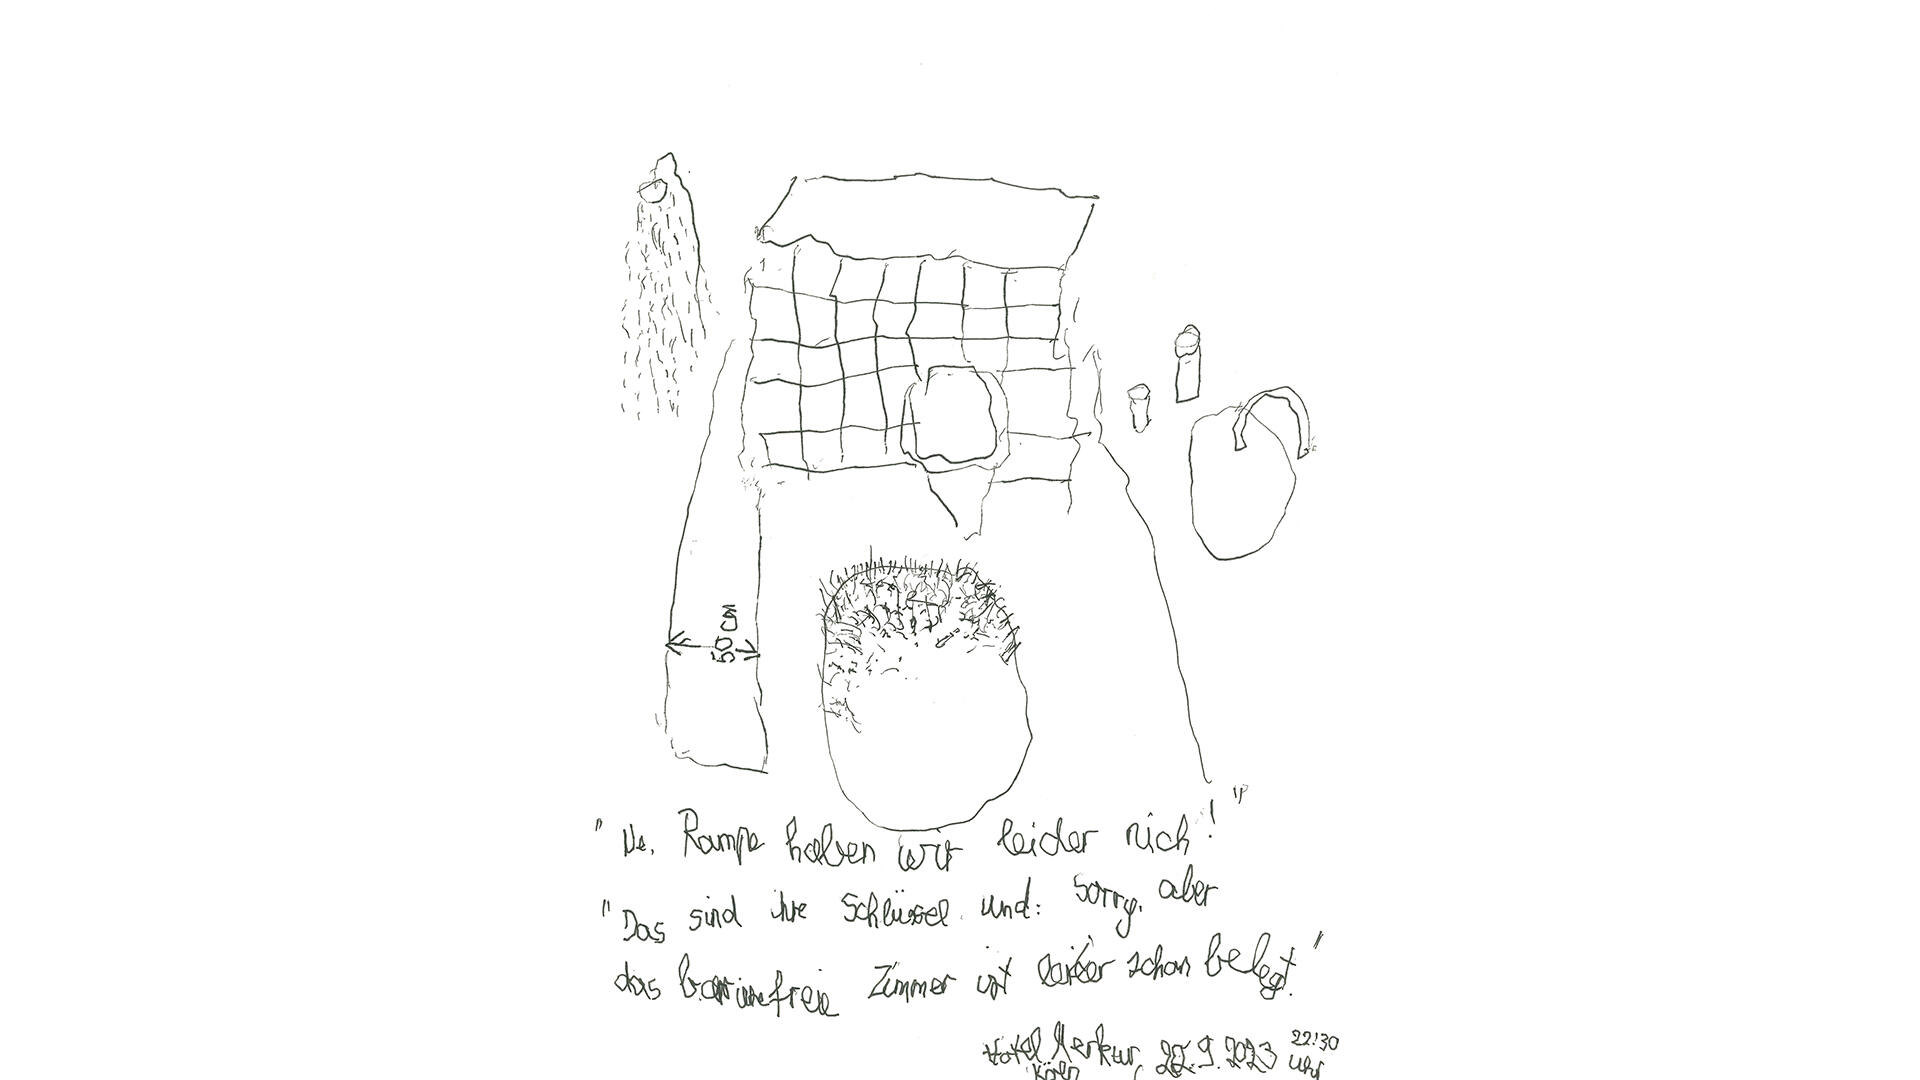 50 CM
"Ne, Rampe haben wir leider nich!"
"Das sind ihre Schlüssel und: Sorry, aber
das barrierefreie Zimmer ist leider schon belegt."
Hotel Merkur, 22.9.2023 22:30
Köln Uhr